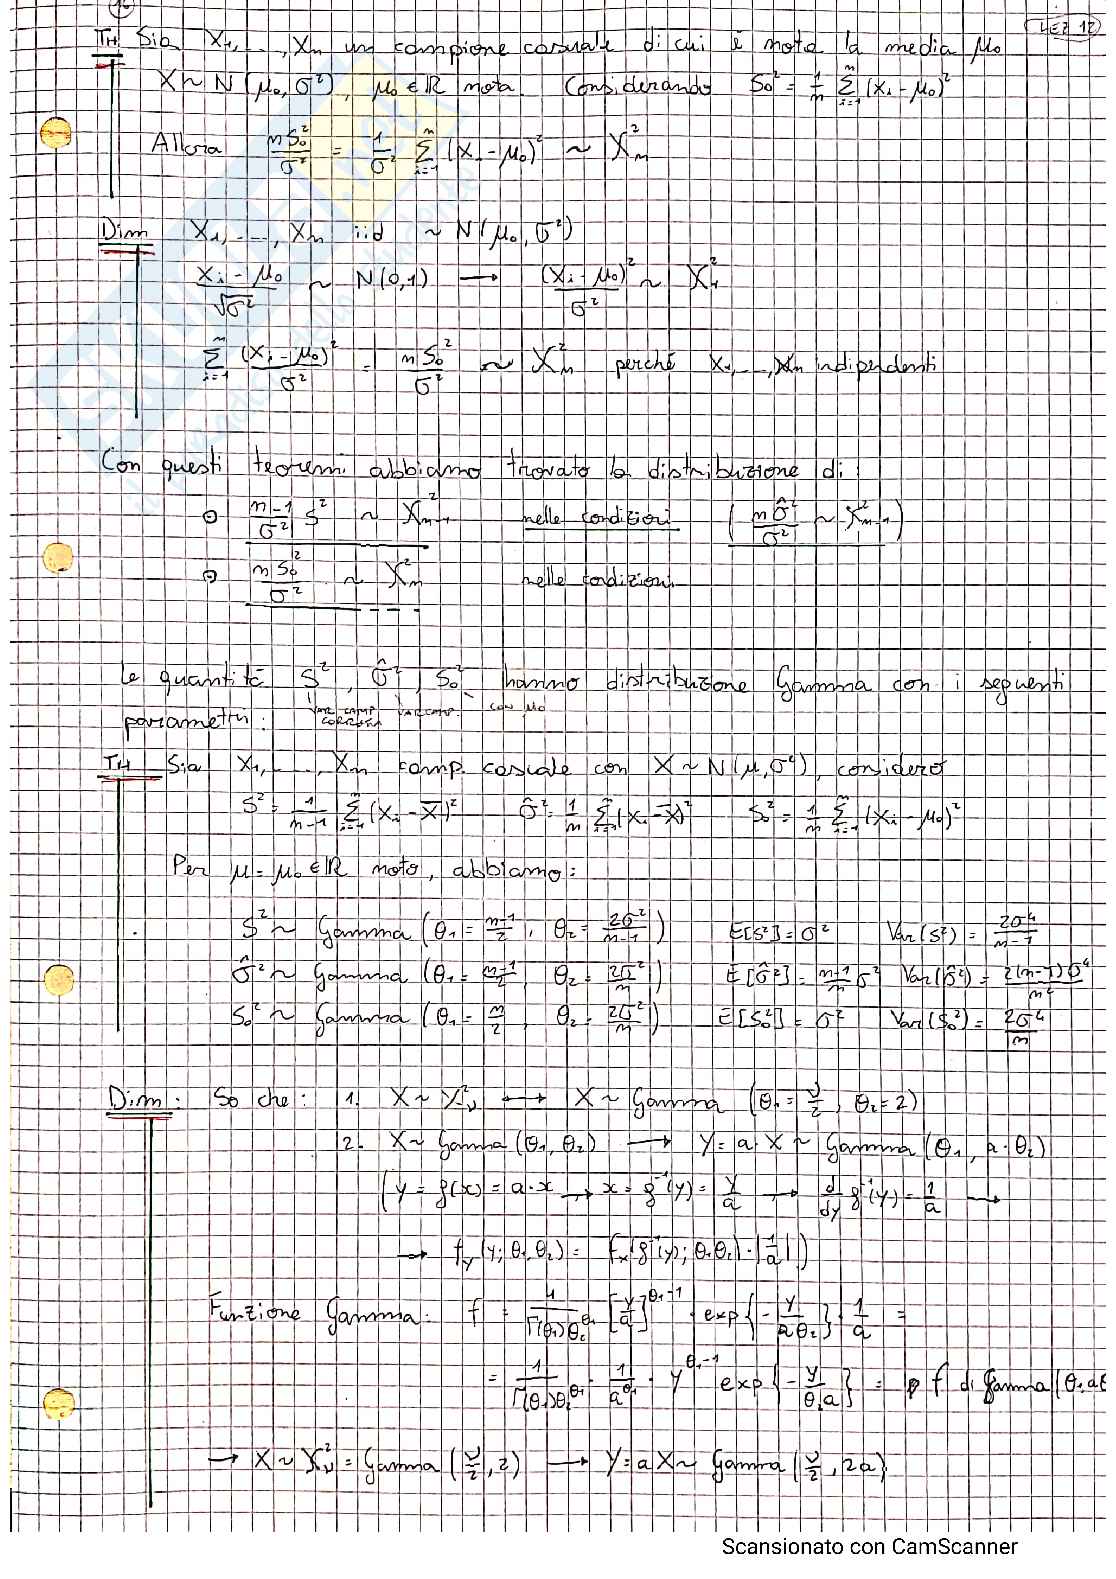 16
LEZ 12
TH Sia X₁, ..., Xₙ un campione casuale di cui è nota la media μ₀
X ~ N(μ₀, σ²), μ₀ ∈ ℝ nota. Considerando S₀² = 1/n Σᵢ₌₁ⁿ (Xᵢ - μ₀)²
Allora nS₀²/σ² = 1/σ² Σᵢ₌₁ⁿ (Xᵢ - μ₀)² ~ χ²ₙ
Dim X₁, ..., Xₙ iid ~ N(μ₀, σ²)
(Xᵢ - μ₀)/√σ² ~ N(0,1) → (Xᵢ - μ₀)²/σ² ~ χ²₁
Σᵢ₌₁ⁿ (Xᵢ - μ₀)²/σ² = nS₀²/σ² ~ χ²ₙ perché X₁, ..., Xₙ indipendenti
Con questi teoremi abbiamo trovato la distribuzione di:
⊙ (n-1)/σ² S² ~ χ²ₙ₋₁ nelle condizioni (nσ̂²/σ² ~ χ²ₙ₋₁)
⊙ nS₀²/σ² ~ χ²ₙ nelle condizioni
Le quantità S², σ̂², S₀² hanno distribuzione Gamma con i seguenti
VAR CAMP CORRETTA VAR CAMP. CON μ₀
parametri:
TH Sia X₁, ..., Xₙ camp. casuale con X ~ N(μ, σ²), considero
S² = 1/(n-1) Σᵢ₌₁ⁿ (Xᵢ - X̄)² σ̂² = 1/n Σᵢ₌₁ⁿ (Xᵢ - X̄)² S₀² = 1/n Σᵢ₌₁ⁿ (Xᵢ - μ₀)²
Per μ = μ₀ ∈ ℝ noto, abbiamo:
S² ~ Gamma (θ₁ = (n-1)/2, θ₂ = 2σ²/(n-1)) E[S²] = σ² Var(S²) = 2σ⁴/(n-1)
σ̂² ~ Gamma (θ₁ = (n-1)/2, θ₂ = 2σ²/n) E[σ̂²] = (n-1)/n σ² Var(σ̂²) = 2(n-1)σ⁴/n²
S₀² ~ Gamma (θ₁ = n/2, θ₂ = 2σ²/n) E[S₀²] = σ² Var(S₀²) = 2σ⁴/n
Dim: So che: 1. X ~ χ²ᵥ ↔ X ~ Gamma (θ₁ = ν/2, θ₂ = 2)
2. X ~ Gamma (θ₁, θ₂) → Y = a · X ~ Gamma (θ₁, a · θ₂)
(y = g(x) = a · x → x = g⁻¹(y) = y/a → d/dy g⁻¹(y) = 1/a →
→ f_Y(y; θ₁, θ₂) = f_X(g⁻¹(y); θ₁, θ₂) · |1/a|)
Funzione Gamma: f = 1/(Γ(θ₁)θ₂^θ₁) [y/a]^(θ₁-1) · exp{-y/(aθ₂)} 1/a =
= 1/(Γ(θ₁)θ₂^θ₁) · 1/a^θ₁ · y^(θ₁-1) exp{-y/(θ₂a)} = f di Gamma (θ₁, aθ
→ X ~ χ²ᵥ = Gamma (ν/2, 2) → Y = aX ~ Gamma (ν/2, 2a)
Scansionato con CamScanner